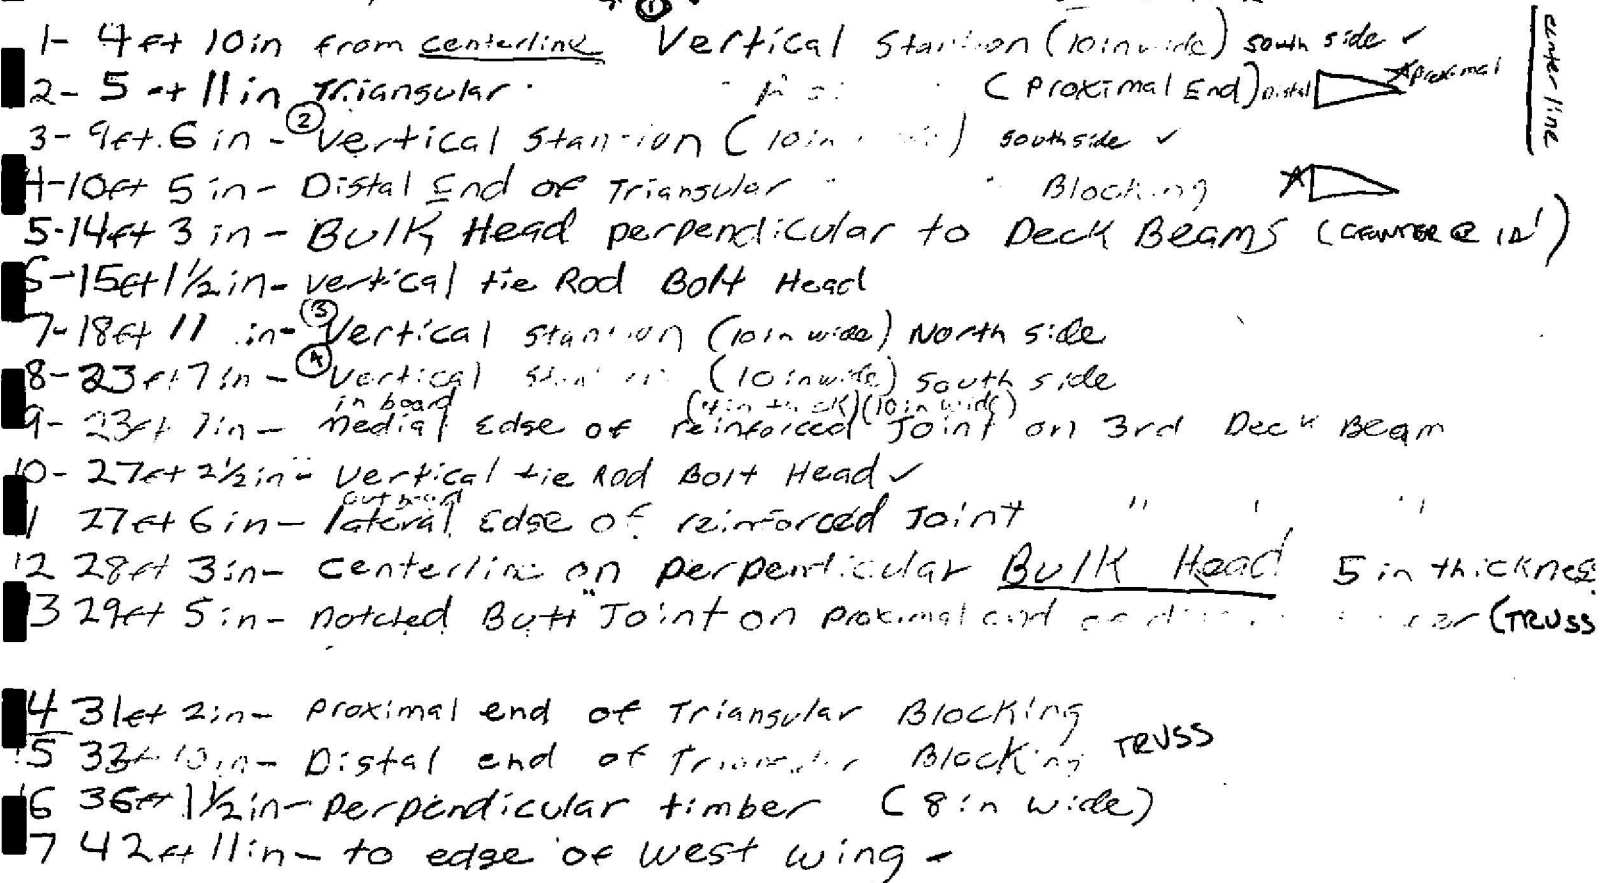 ①
1- 4ft 10in from centerline Vertical Stantion (10in wide) south side ✓
2- 5 ft 11in Triangular (Proximal End) Distal Proximal
centerline
3- 9ft. 6 in - ② Vertical Stantion (10in southside ✓
4-10ft 5 in- Distal End of Triangular Blocking
5-14ft 3 in- Bulk Head perpendicular to Deck Beams (CENTER @ 12')
6-15ft 1 1/2 in- vertical tie Rod Bolt Head
7-18ft 11 in- ③ Vertical Stantion (10in wide) North side
8-23ft 7in- ④ Vertical (10in wide) south side
in board (4in thick)(10in wide)
9- 23ft 7in- medial Edge of reinforced Joint on 3rd Deck Beam
10- 27ft 2 1/2 in- Vertical tie Rod Bolt Head ✓
out board
11 27ft 6in- lateral Edge of reinforced Joint " " "
12 28ft 3in- centerline on perpendicular Bulk Head 5 in thicknes
13 29ft 5in- notched Butt Joint on proximal end (TRUSS
14 31ft 2in- proximal end of Triangular Blocking
15 33ft 10in- Distal end of Triangular Blocking TRUSS
16 36ft 1 1/2in- perpendicular timber (8in wide)
17 42ft 11in- to edge of west wing -